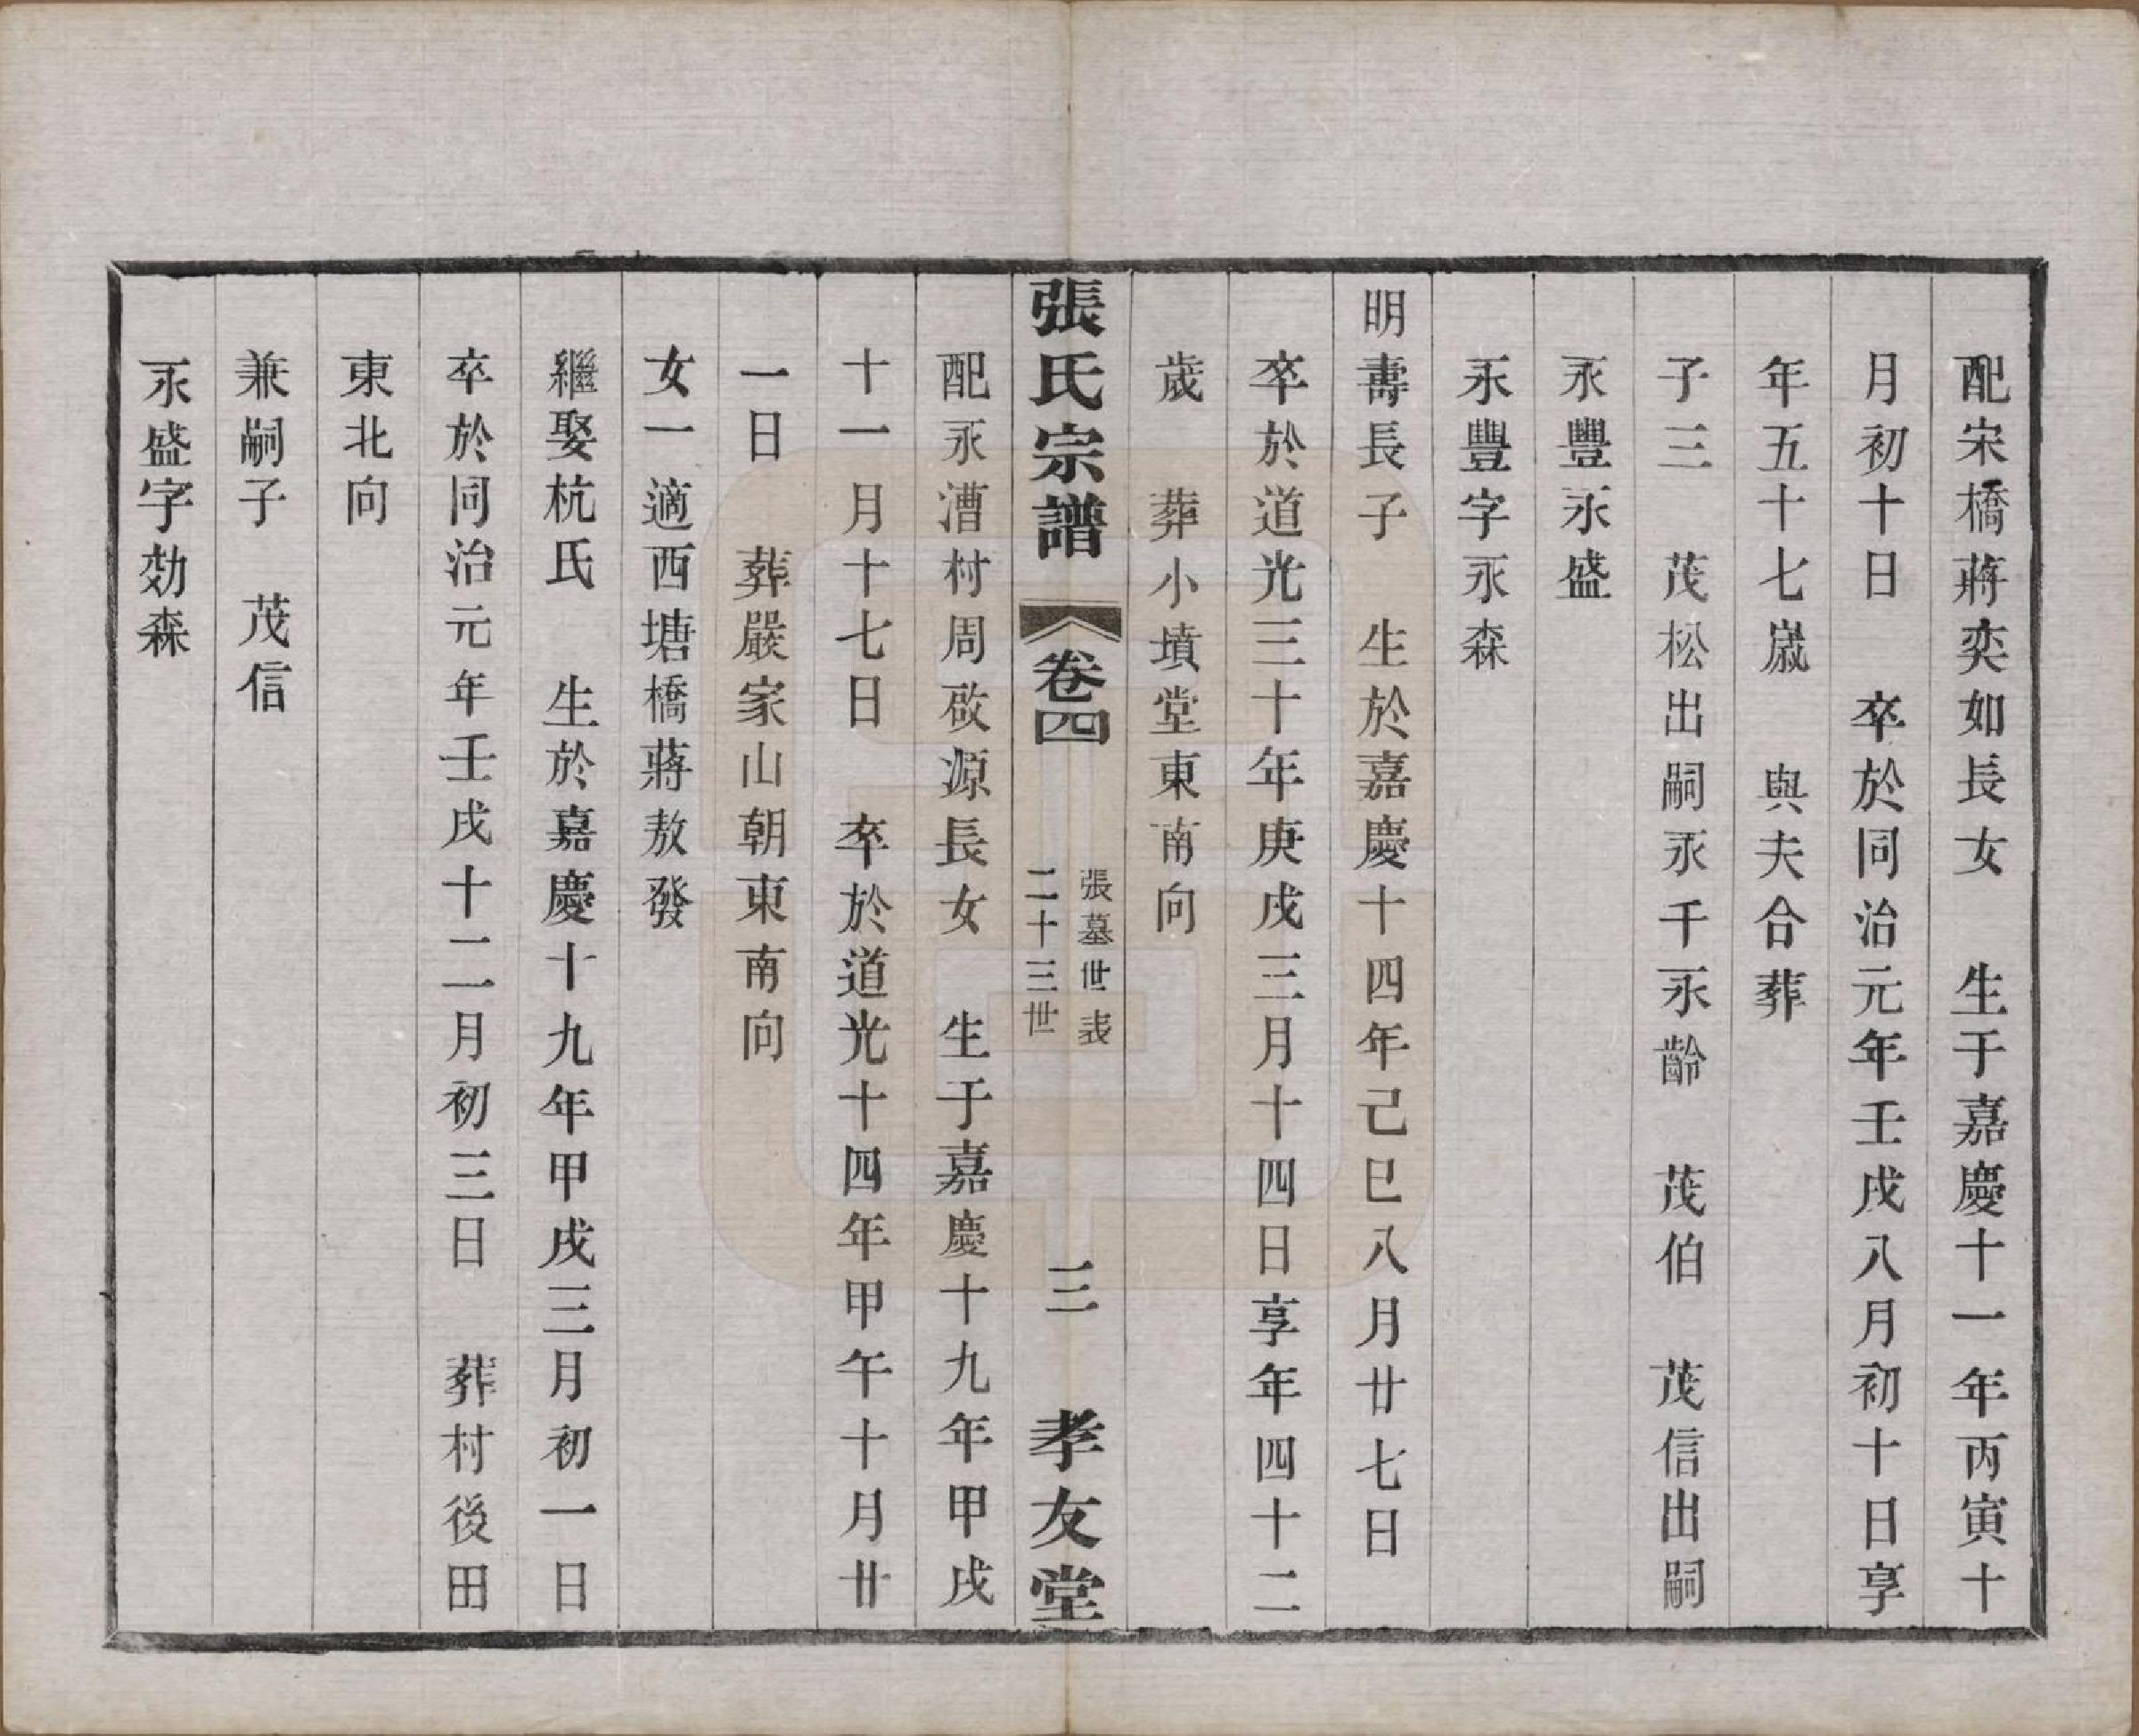 配宋橋蔣奕如長女　生于嘉慶十一年丙寅十
月初十日　卒於同治元年壬戌八月初十日享
年五十七嵗　與夫合葬
子三　茂松出嗣永千永齡　茂伯　茂信出嗣
永豐永盛
永豐字永森
明壽長子　生於嘉慶十四年己巳八月廿七日
卒於道光三十年庚戌三月十四日享年四十二
歲　葬小墳堂東南向
張氏宗譜　卷四　張墓世表　二十三世　三　孝友堂
配永漕村周啟源長女　生于嘉慶十九年甲戌
十一月十七日　卒於道光十四年甲午十月廿
一日　葬嚴家山朝東南向
女一適西塘橋蔣敖發
繼娶杭氏　生於嘉慶十九年甲戌三月初一日
卒於同治元年壬戌十二月初三日　葬村後田
東北向
兼嗣子　茂信
永盛字効森